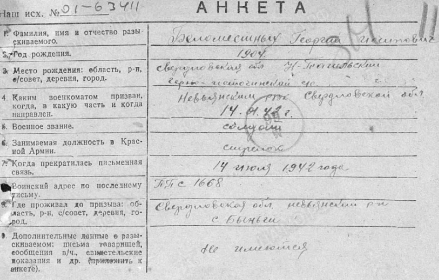 Наш исх. № 01-63411
АНКЕТА
1. Фамилия, имя и отчество разыскиваемого.
Беломестных Георгий
2. Год рождения.
1904.
3. Место рождения: область, р-н, с/совет, деревня, город.
Свердловская обл Н-Тагильский
4. Каким военкоматом призван, когда, в какую часть и когда направлен.
Невьянским Свердловской обл
14 42 г.
5. Военное звание.
солдат
6. Занимаемая должность в Красной Армии.
стрелок
7. Когда прекратилась письменная связь.
14 июля 1942 года.
Воинский адрес по последнему письму.
ППС 1668
Где проживал до призыва: область, р-н, с/совет, деревня, город.
Свердловская обл невьянский рн
с. Быньги
9. Дополнительные данные о разыскиваемом: письма товарищей, сообщения в/ч., свидетельские показания и др. (приложить к анкете).
Не имеются